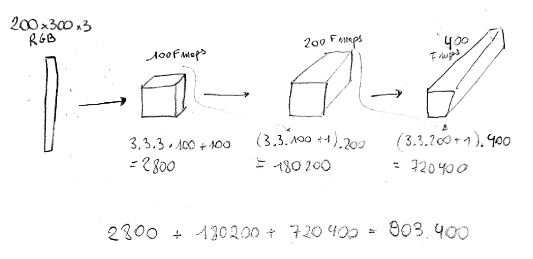 200x300x3
RGB
100 Fmaps
200 Fmaps
400
Fmaps
3.3.3.100+100
=2800
(3.3.100+1).200
=180200
(3.3.200+1).400
=720400
2800 + 180200 + 720400 = 903.400